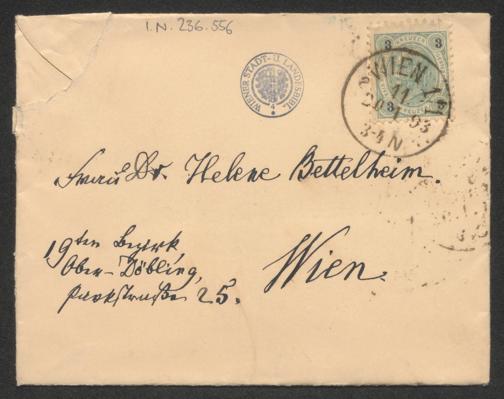 I.N. 236.556
WIENER STADT- U. LANDESBIBL.
3 KREUZER 3
WIEN 1/1
11
20 1 93
3-4 N
Frau Dr. Helene Bettelheim.
19ten Bezirk
Ober-Döbling,
Parkstraße 25.
Wien.